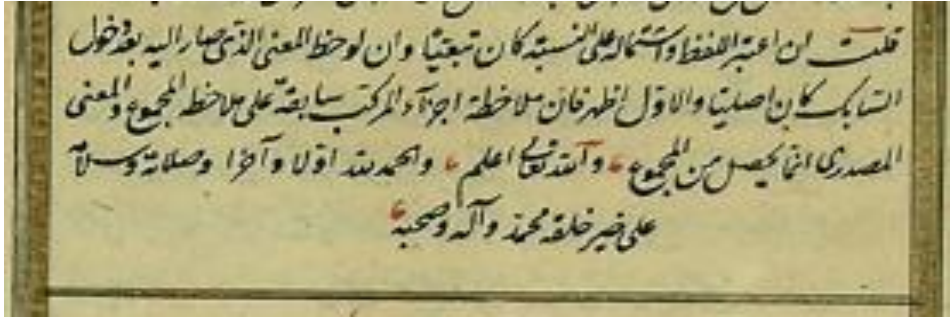 قلت ان اعتبر اللفظ واشتماله على النسبة كان تبعيا وان لوحظ المعنى الذى صار اليه بعد دخول
السابك كان اصليا والاول اظهر فان ملاحظة اجزاء المركب سابقة على ملاحظة المجموع والمعنى
المصدرى انما يحصل من المجموع والله تعالى اعلم والحمد لله اولا وآخرا وصلاته وسلامه
على خير خلقه محمد وآله وصحبه